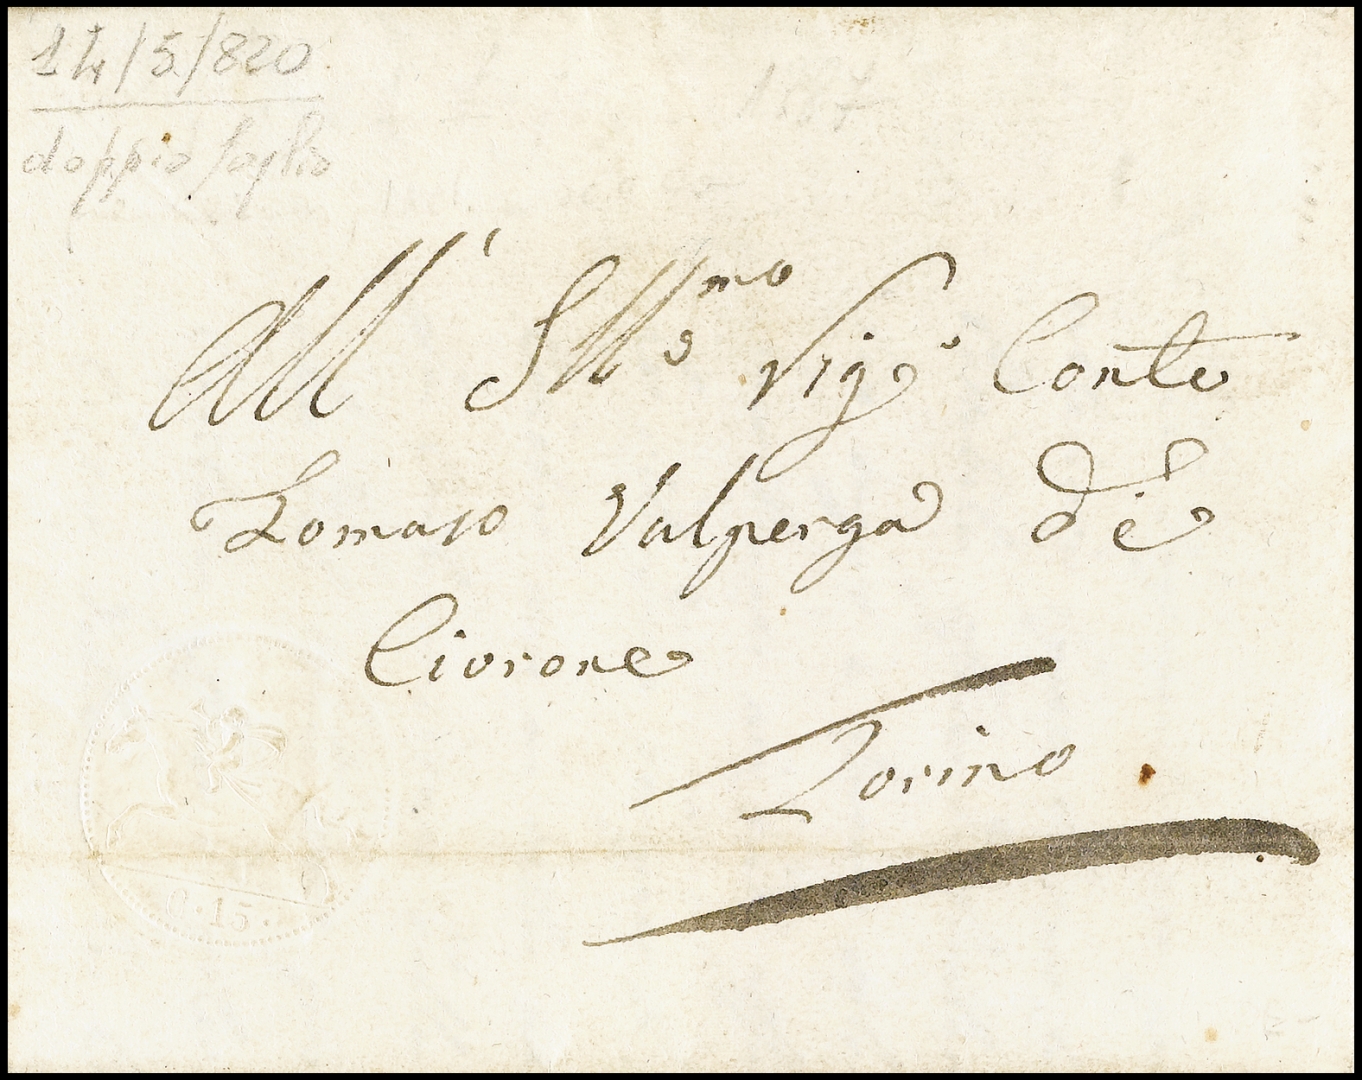 14/5/820
doppio foglio
All' Ill.mo Sig.e Conte
Tomaso Valperga de
Civrone
Torino
0.15.